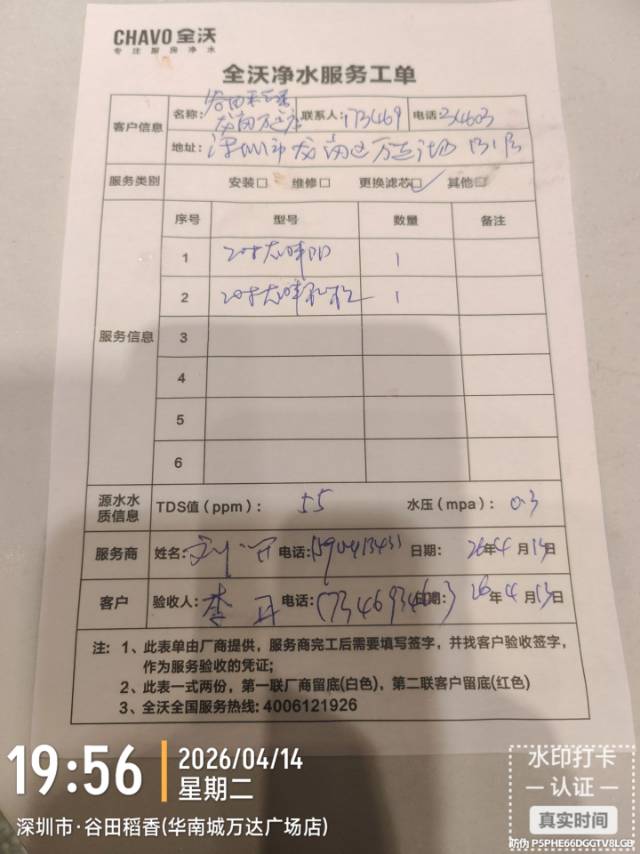 CHAVO 全沃
专注厨房净水
全沃净水服务工单
客户信息 名称: 谷田稻香 龙岗万达店 联系人: 173469 电话: 34603
地址: 深圳市龙岗区万达广场
服务类别 安装□ 维修□ 更换滤芯□✓ 其他□
服务信息 序号 型号 数量 备注
1 20寸大胖 1
2 20寸大胖 1
3
4
5
6
源水水质信息 TDS值(ppm): 55 水压(mpa): 0.3
服务商 姓名: 刘 电话: 日期: 26年4月 日
客户 验收人: 李 电话: 17346934603 日期: 26年4月13日
注: 1、此表单由厂商提供，服务商完工后需要填写签字，并找客户验收签字，
作为服务验收的凭证;
2、此表一式两份，第一联厂商留底(白色)，第二联客户留底(红色)
3、全沃全国服务热线: 4006121926
19:56 2026/04/14
星期二
深圳市·谷田稻香(华南城万达广场店)
水印打卡
认证
真实时间
防伪 P5PHE66DGGTV8LGB